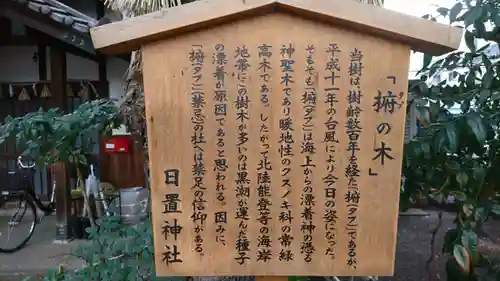 「椨の木」
タブ
当樹は、樹齢数百年を経た「椨(タブ)」であるが、
平成十一年の台風により今日の姿になった。
そもそも「椨(タブ)」は海上からの漂着神の憑る
神聖木であり暖地性のクスノキ科の常緑
高木である。したがって北陸能登等の海岸
地帯にこの樹木が多いのは黒潮が運んだ種子
の漂着が原因であると思われる。因みに
「椨(タブ)」(禁忌)の杜には禁足の信仰がある。
日置神社